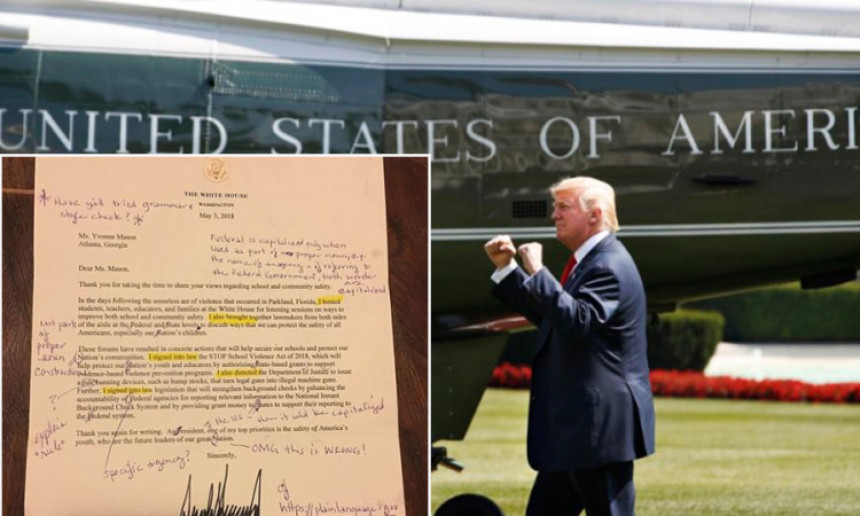 UNITED STATES OF AMERI
THE WHITE HOUSE
WASHINGTON
May 3, 2018
Have y'all tried grammar &
style check?
Ms. Yvonne Mason
Atlanta, Georgia
Federal is capitalized only when
used as part of a proper noun, e.g.
the name of an agency - if referring to
the Federal Government, both words
are capitalized
Dear Ms. Mason,
Thank you for taking the time to share your views regarding school and community safety.
In the days following the senseless act of violence that occurred in Parkland, Florida, I hosted
students, teachers, educators, and families at the White House for listening sessions on ways to
improve both school and community safety. I also brought together lawmakers from both sides
of the aisle at the Federal and State levels to discuss ways that we can protect the safety of all
Americans, especially our Nation's children.
Not part
of
proper
noun
construction
These forums have resulted in concrete actions that will help secure our schools and protect our
Nation's communities. I signed into law the STOP School Violence Act of 2018, which will
help protect our Nation's youth and educators by authorizing State-based grants to support
evidence-based violence prevention programs. I also directed the Department of Justice to issue
a rule banning devices, such as bump stocks, that turn legal guns into illegal machine guns.
Further, I signed into law legislation that will strengthen background checks by enhancing the
accountability of Federal agencies for reporting relevant information to the National Instant
Background Check System and by providing grant money to States to support their reporting to
the Federal system.
?
explain
"rule"
of the US - then it would be capitalized
Thank you again for writing. As President, one of my top priorities is the safety of America's
youth, who are the future leaders of our great Nation.
OMG this is WRONG!
specific agency?
Sincerely,
https://plainlanguage.gov